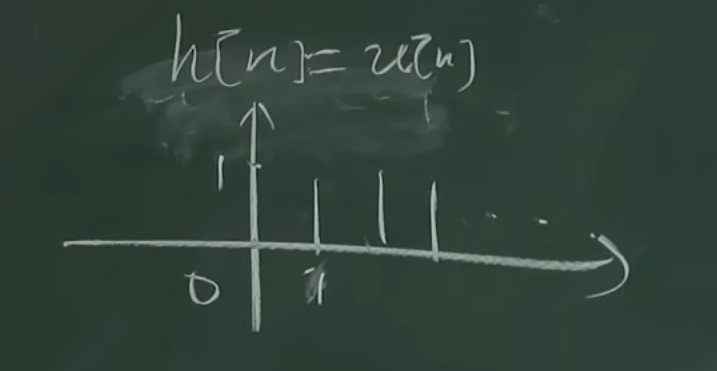 h[n]=u[n]
1
0 1